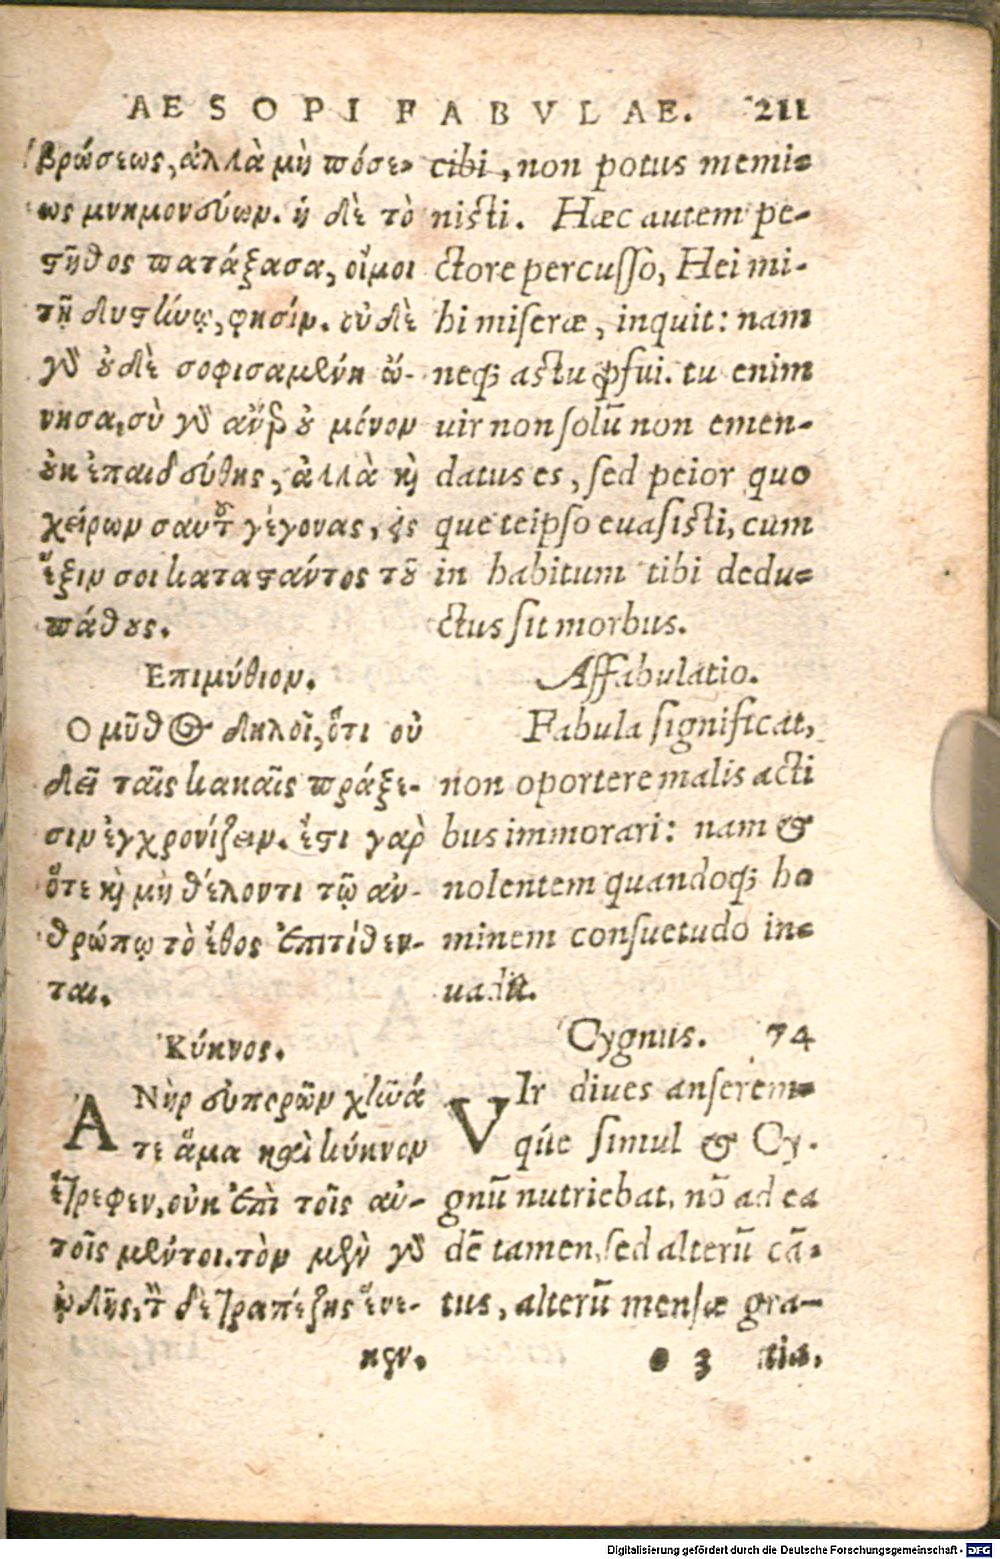 AESOPI FABVLAE. 211
βρώσεως, ἀλλὰ μὴ πόσε-
ως μνημονεύων. ἡ δὲ τὸ
στῆθος πατάξασα, οἴμοι
τῇ δυστήνῳ, φησίν. οὐδὲ
γὸ ουδὲ σοφισαμένη ὤ-
νησα, σὺ γὸ ἄνερ ου μόνον
ουκ ἐπαιδεύθης, ἀλλὰ κὶ
χείρων σαυτου γέγονας, εἰς
ἕξιν σοι καταστάντος του
πάθους.
Επιμύθιον.
Ο μῦθος δηλοῖ, ὅτι οὐ
δεῖ ταῖς κακαῖς πράξε-
σιν ἐγχρονίζειν. ἔστι γαρ
ὅτε κὶ μὴ θέλοντι τῷ ἀν-
θρώπῳ τὸ ἔθος ἐπιτίθεν-
ται.
Κύκνος.
ΑΝὴρ εὐπορῶν χῆνά
τε ἅμα καὶ κύκνον
ἔτρεφεν, οὐκ ἐπὶ τοῖς αὐ-
τοῖς μέντοι. τὸν μὲν γὸ
ᾠδῆς, τὸν δὲ τραπέζης ἕνε-
κεν.
cibi, non potus memi-
nisti. Hæc autem pe-
ctore percusso, Hei mi-
hi miseræ, inquit: nam
neqꝫ astu ꝓfui. tu enim
uir non solũ non emen-
datus es, sed peior quo
que teipso euasisti, cum
in habitum tibi dedu-
ctus sit morbus.
Affabulatio.
Fabula significat,
non oportere malis acti
bus immorari: nam &
nolentem quandoqꝫ ho
minem consuetudo in-
uadit.
Cygnus. 74
VIr diues anserem-
qúe simul & Cy-
gnũ nutriebat, nõ ad ea
dẽ tamen, sed alterũ cã-
tus, alterũ mensæ gra-
o 3 tia.
Digitalisierung gefördert durch die Deutsche Forschungsgemeinschaft - DFG